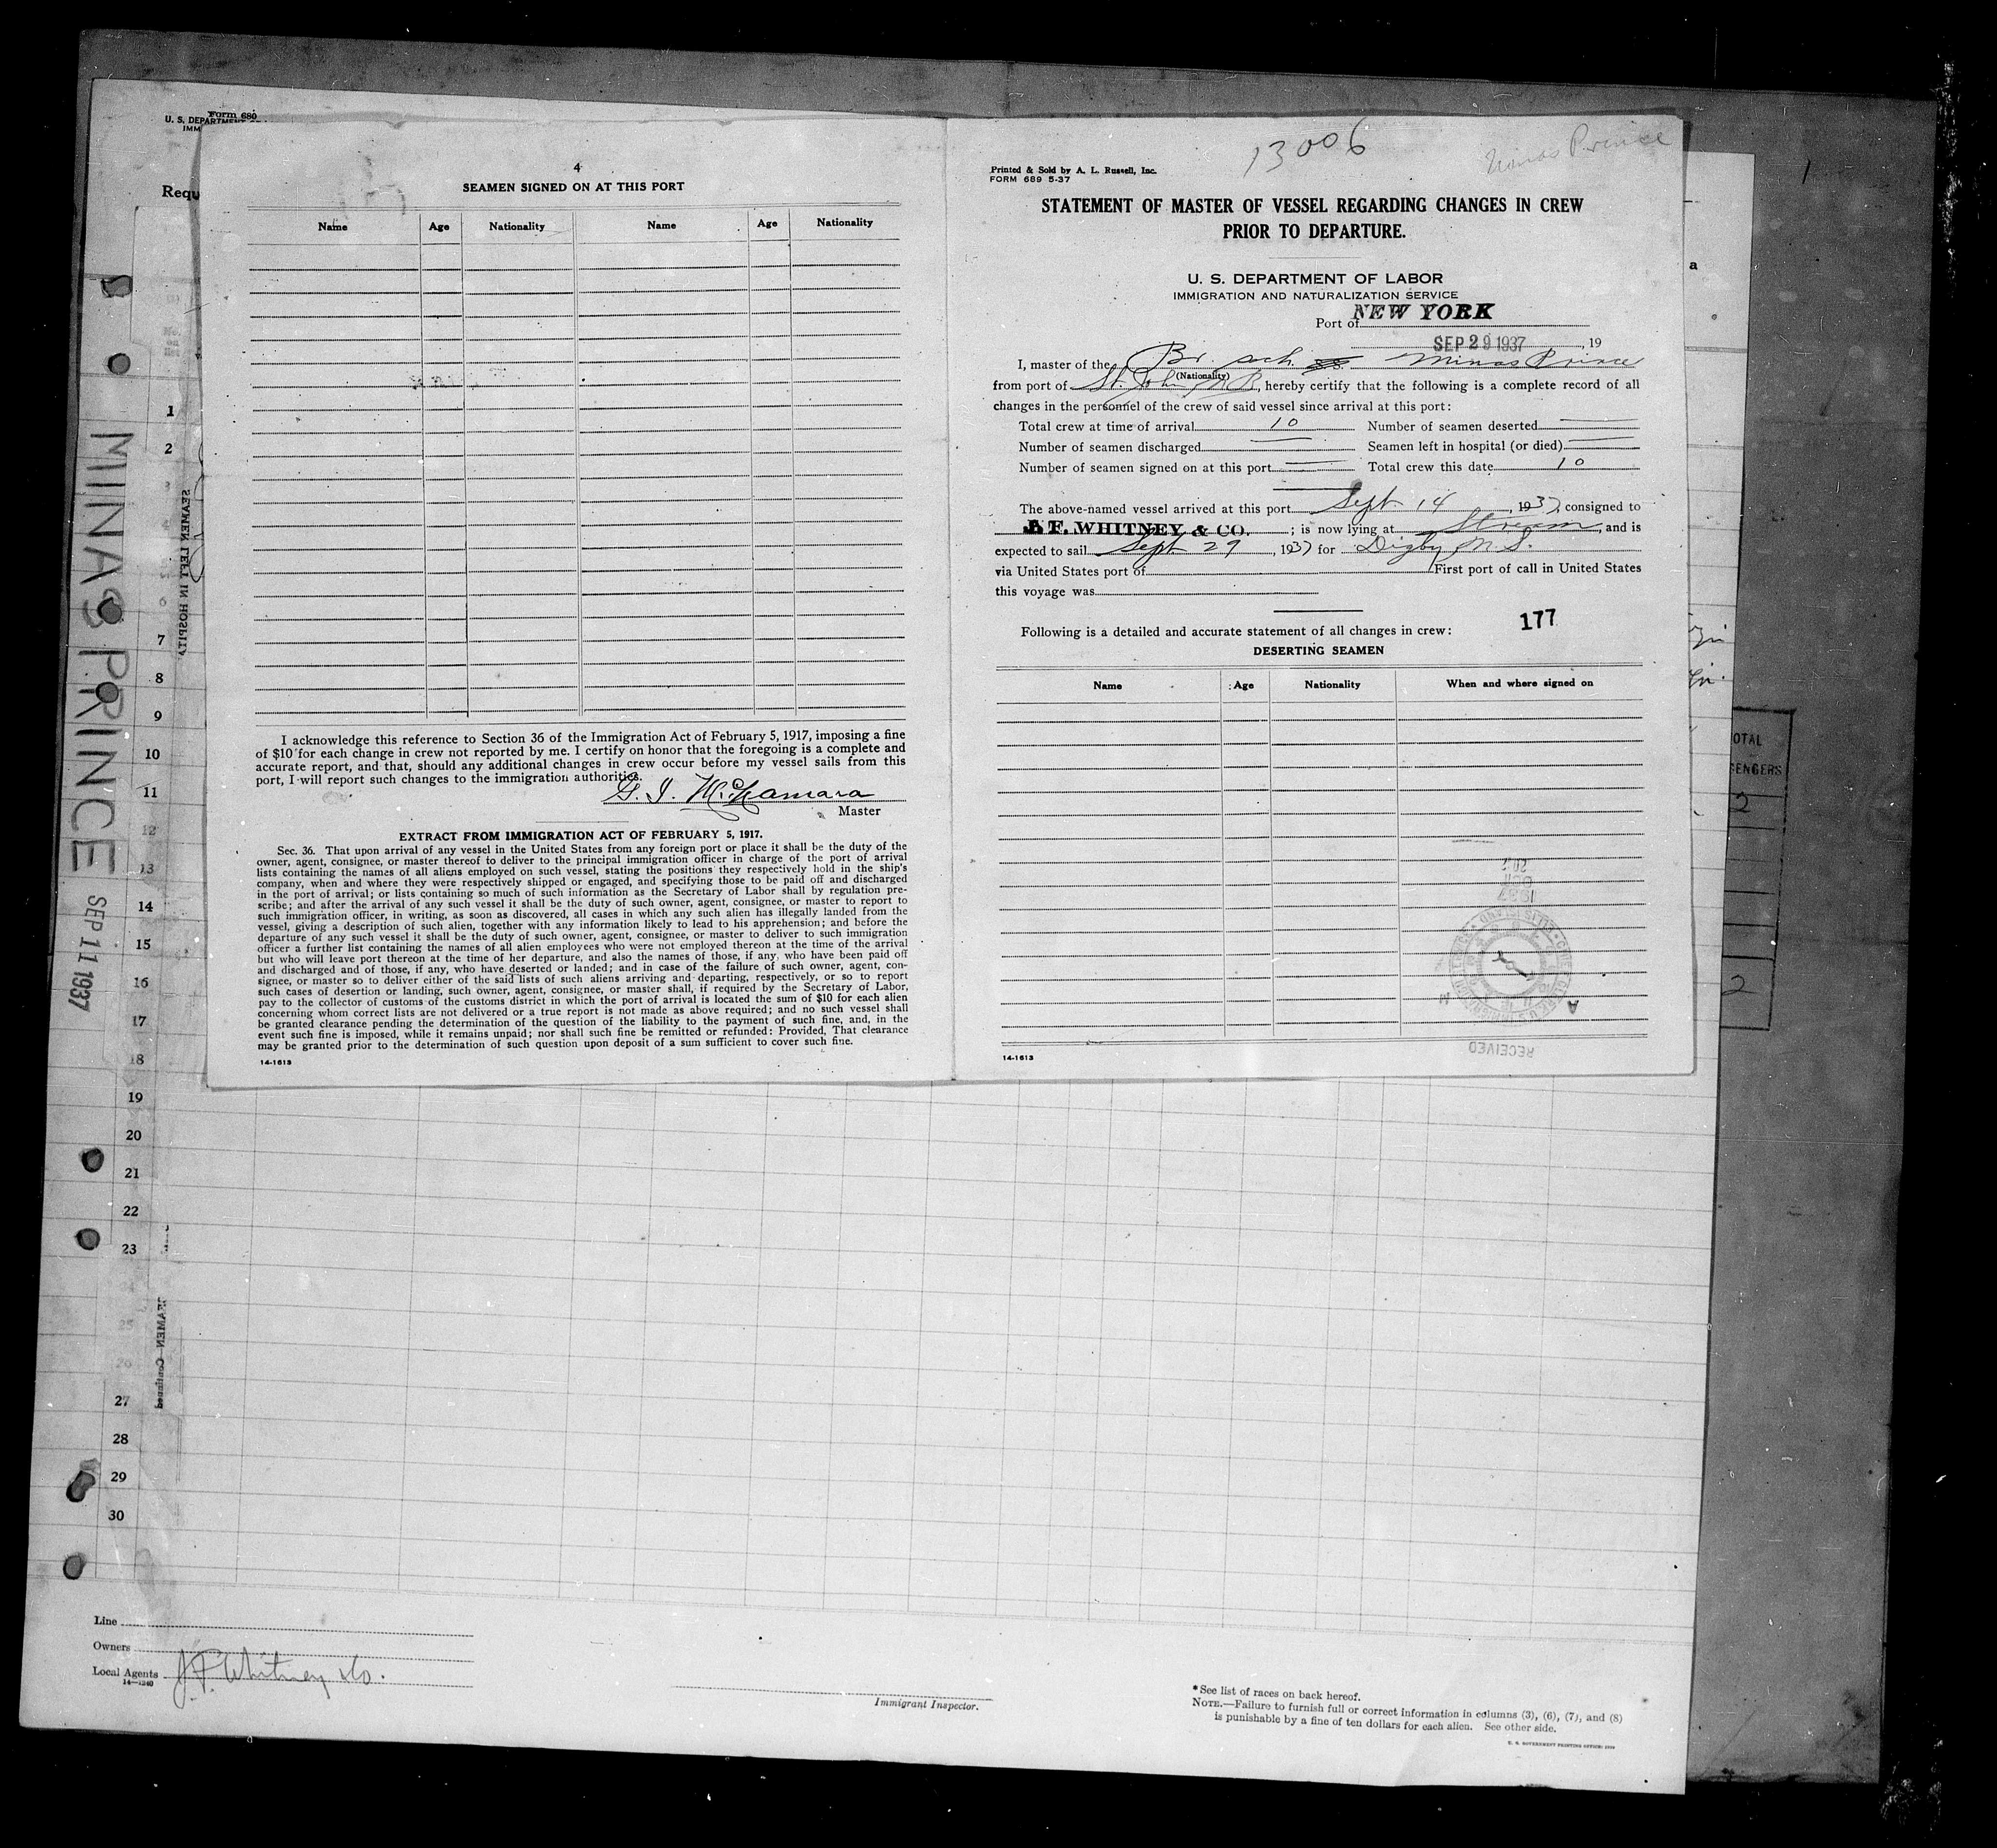 Form 680
U. S. DEPARTMENT
IMM
Requ
4
SEAMEN SIGNED ON AT THIS PORT
Name Age Nationality Name Age Nationality
I acknowledge this reference to Section 36 of the Immigration Act of February 5, 1917, imposing a fine
of $10 for each change in crew not reported by me. I certify on honor that the foregoing is a complete and
accurate report, and that, should any additional changes in crew occur before my vessel sails from this
port, I will report such changes to the immigration authorities.
G. I. McNamara
Master
EXTRACT FROM IMMIGRATION ACT OF FEBRUARY 5, 1917.
Sec. 36. That upon arrival of any vessel in the United States from any foreign port or place it shall be the duty of the
owner, agent, consignee, or master thereof to deliver to the principal immigration officer in charge of the port of arrival
lists containing the names of all aliens employed on such vessel, stating the positions they respectively hold in the ship's
company, when and where they were respectively shipped or engaged, and specifying those to be paid off and discharged
in the port of arrival; or lists containing so much of such information as the Secretary of Labor shall by regulation pre-
scribe; and after the arrival of any such vessel it shall be the duty of such owner, agent, consignee, or master to report to
such immigration officer, in writing, as soon as discovered, all cases in which any such alien has illegally landed from the
vessel, giving a description of such alien, together with any information likely to lead to his apprehension; and before the
departure of any such vessel it shall be the duty of such owner, agent, consignee, or master to deliver to such immigration
officer a further list containing the names of all alien employees who were not employed thereon at the time of the arrival
but who will leave port thereon at the time of her departure, and also the names of those, if any, who have been paid off
and discharged and of those, if any, who have deserted or landed; and in case of the failure of such owner, agent, con-
signee, or master so to deliver either of the said lists of such aliens arriving and departing, respectively, or so to report
such cases of desertion or landing, such owner, agent, consignee, or master shall, if required by the Secretary of Labor,
pay to the collector of customs of the customs district in which the port of arrival is located the sum of $10 for each alien
concerning whom correct lists are not delivered or a true report is not made as above required; and no such vessel shall
be granted clearance pending the determination of the question of the liability to the payment of such fine, and, in the
event such fine is imposed, while it remains unpaid; nor shall such fine be remitted or refunded: Provided, That clearance
may be granted prior to the determination of such question upon deposit of a sum sufficient to cover such fine.
14-1613
13006
Minas Prince
Printed & Sold by A. L. Russell, Inc.
FORM 689 5-37
STATEMENT OF MASTER OF VESSEL REGARDING CHANGES IN CREW
PRIOR TO DEPARTURE.
U. S. DEPARTMENT OF LABOR
IMMIGRATION AND NATURALIZATION SERVICE
Port of NEW YORK
SEP 29 1937, 19
I, master of the Br. sch. SS. Minas Prince
(Nationality)
from port of St. John N B, hereby certify that the following is a complete record of all
changes in the personnel of the crew of said vessel since arrival at this port:
Total crew at time of arrival 10 Number of seamen deserted
Number of seamen discharged Seamen left in hospital (or died)
Number of seamen signed on at this port Total crew this date 10
The above-named vessel arrived at this port Sept. 14, 1937, consigned to
J. F. WHITNEY & CO. ; is now lying at Stream, and is
expected to sail Sept 29, 1937 for Digby N. S.
via United States port of First port of call in United States
this voyage was
177
Following is a detailed and accurate statement of all changes in crew:
DESERTING SEAMEN
Name Age Nationality When and where signed on
1937
RECEIVED
14-1613
MINAS PRINCE SEP 11 1937
SEAMEN LEFT IN HOSPITA
SEAMEN Continued
1
2
3
4
6
7
8
9
10
11
12
13
14
15
16
17
18
19
20
21
22
23
25
26
27
28
29
30
a
OTAL
SENGERS
2
2
Line
Owners
Local Agents J. F. Whitney & Co.
14-1240
Immigrant Inspector.
*See list of races on back hereof.
NOTE.—Failure to furnish full or correct information in columns (3), (6), (7), and (8)
is punishable by a fine of ten dollars for each alien. See other side.